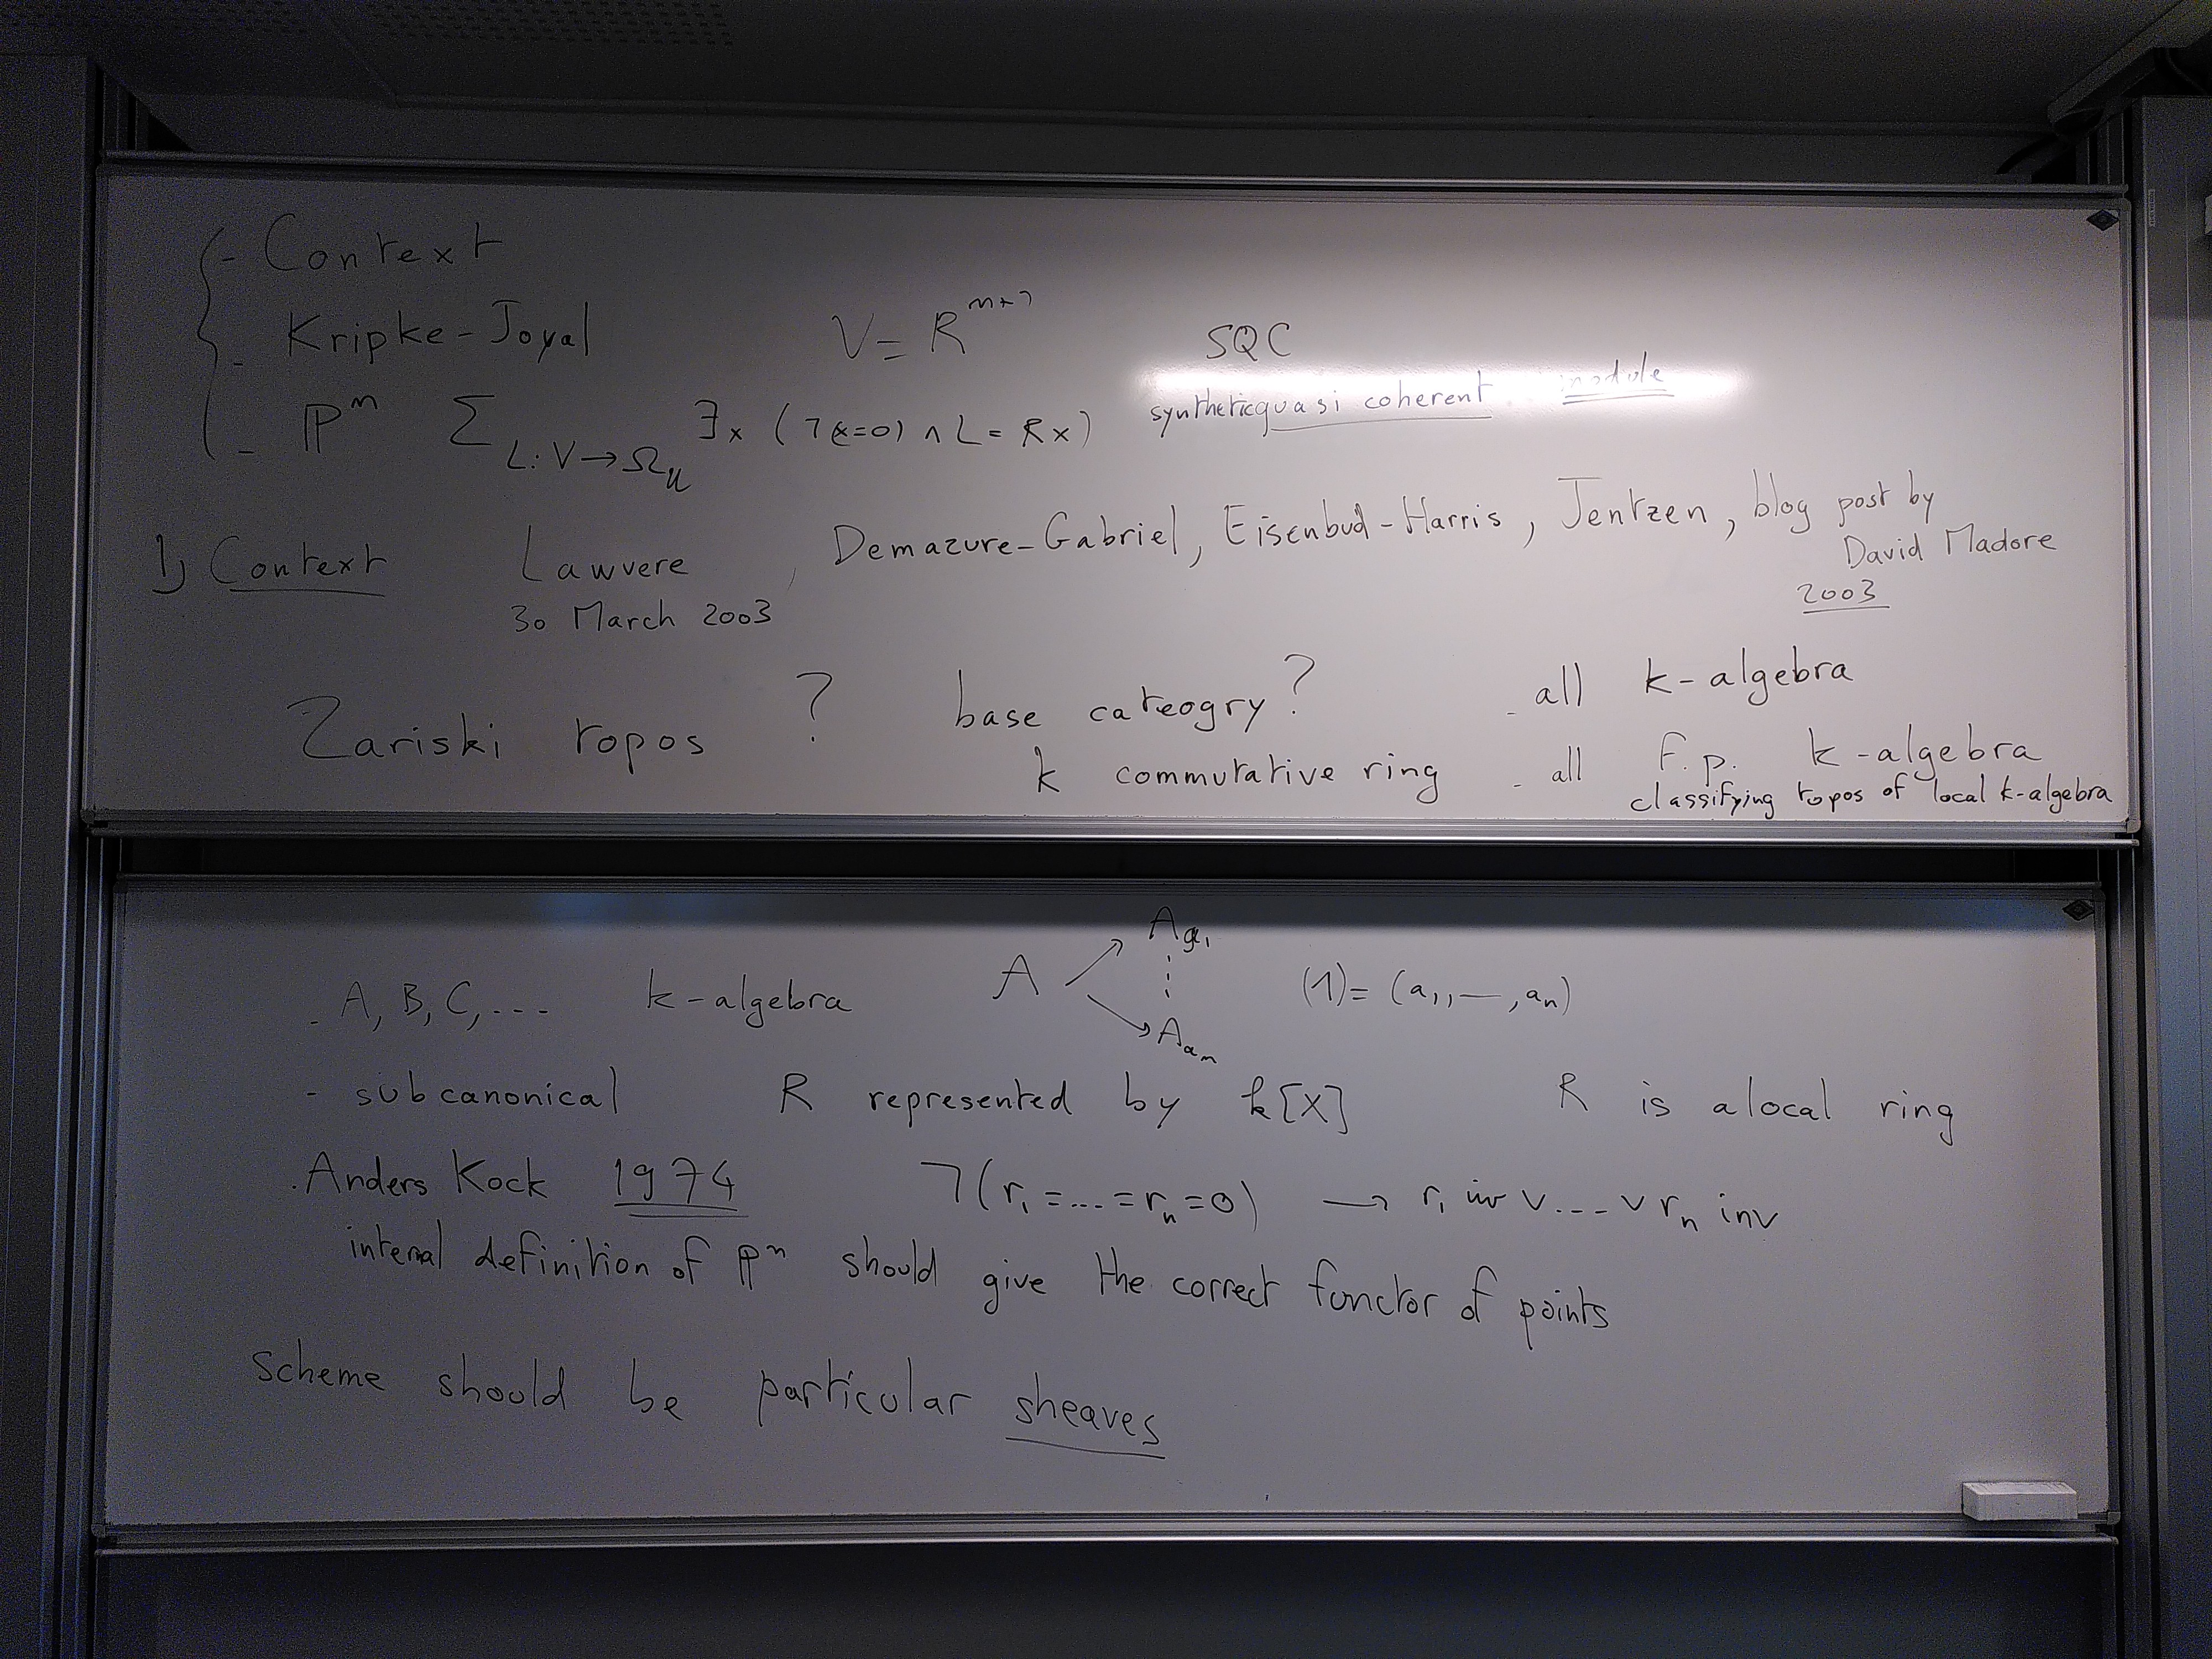 - Context
- Kripke-Joyal V = R^{n+1} SQC
- ℙ^n Σ_{L:V→Ω_U} ∃x (¬(x=0) ∧ L = Rx) synthetic quasi coherent module
1) Context Lawvere, Demazure-Gabriel, Eisenbud-Harris, Jentzen, blog post by
30 March 2003 David Madore
2003
Zariski topos ? base cateogry? - all k-algebra
k commutative ring - all f.p. k-algebra
classifying topos of local k-algebra
- A, B, C, ... k-algebra A → A_{a_1} ... A_{a_n} (1) = (a_1, —, a_n)
- subcanonical R represented by k[X] R is a local ring
. Anders Kock 1974 ¬(r_1 = ... = r_n = 0) → r_1 inv ∨ ... ∨ r_n inv
internal definition of ℙ^n should give the correct functor of points
Scheme should be particular sheaves